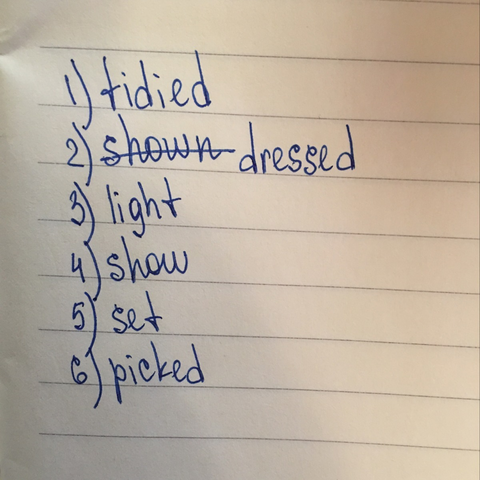 1) tidied
2) shown dressed
3) light
4) show
5) set
6) picked